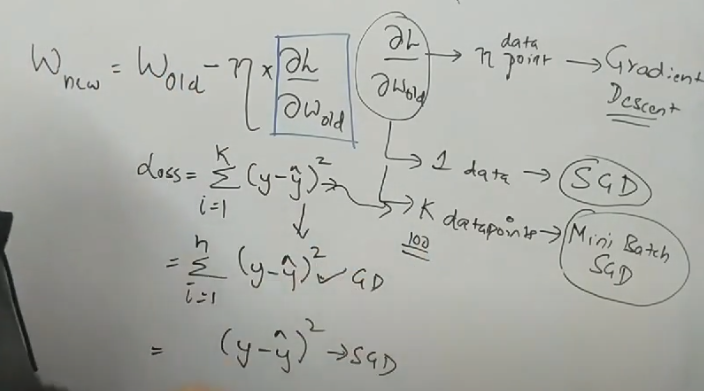 W_new = W_old - η × ∂L/∂W_old
∂L/∂W_old → n data point → Gradient Descent
→ 1 data → SGD
→ K datapoints → Mini Batch SGD
100
Loss = Σ_{i=1}^{K} (y-ŷ)² →
= Σ_{i=1}^{n} (y-ŷ)² ✓ GD
= (y-ŷ)² → SGD